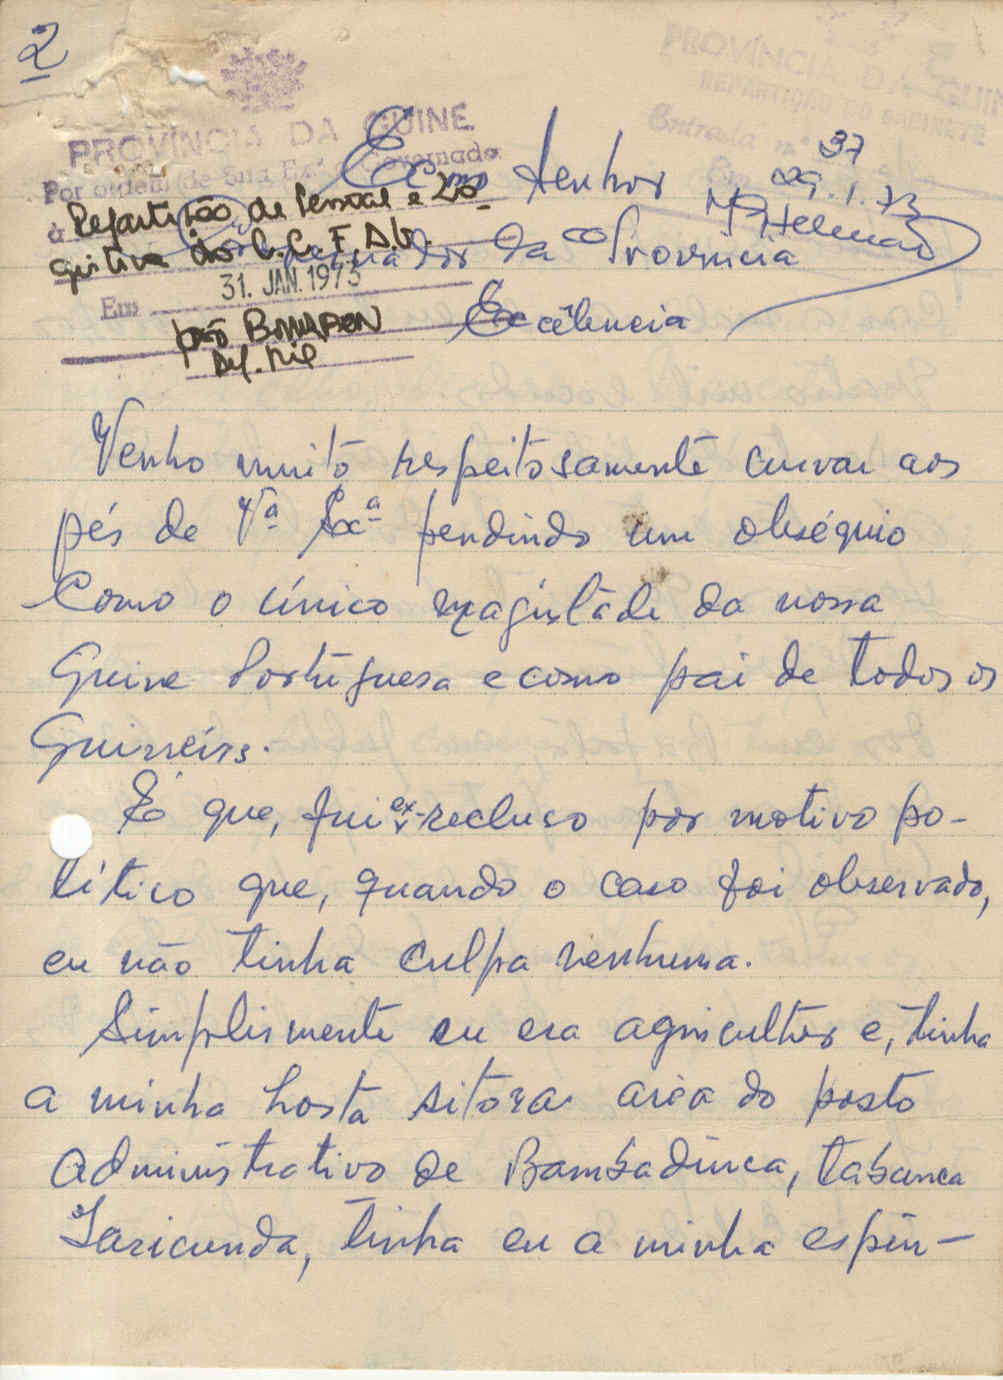 2
PROVÍNCIA DA GUINE
Por ordem de Sua Exª o Governador
à Repartição de Pessoal e Lo-
gistica do C.C.F.A.G.
Em 31. JAN. 1973
PROVÍNCIA DA GUIN
REPARTIÇÃO DO GABINETE
Entrada nº 37
Em 29.1.73
Exmo Senhor
Governador da Provincia
Excêlencia
Venho muito respeitosamente curvar aos
pés de Vª Exª pendindo um obséquio
Como o único magistade da nossa
Guine Portuguesa e como pai de todos os
Guineeiss.
Só que, fui ex-recluso por motivo po-
lítico que, quando o caso foi observado,
eu não tinha culpa nenhuma.
Simplismente eu era agricultor e, tinha
a minha hosta sitora area do posto
Administrativo de Bambadinca, tabanca
Jaricunda, tinha eu a minha espin-